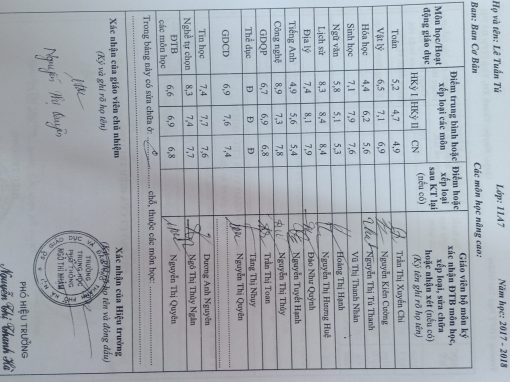 Họ và tên: Lê Tuấn Tú Lớp: 11A7 Năm học: 2017 - 2018
Ban: Ban Cơ Bản Các môn học nâng cao:
Môn học/Hoạt động giáo dục | Điểm trung bình hoặc xếp loại các môn | Điểm hoặc xếp loại sau KT lại (nếu có) | Giáo viên bộ môn ký xác nhận ĐTB môn học, xếp loại, sửa chữa hoặc nhận xét (nếu có) (Ký ghi rõ họ tên)
HKỳ I | HKỳ II | CN
Toán 5,2 4,7 4,9 Trần Thị Xuyến Chi
Vật lý 6,5 7,1 6,9 Nguyễn Kiên Cường
Hóa học 4,4 6,2 5,6 Nguyễn Thị Tú Thanh
Sinh học 7,1 7,9 7,6 Vũ Thị Thanh Nhàn
Ngữ văn 5,8 5,1 5,3 Hoàng Thị Hạnh
Lịch sử 8,3 8,4 8,4 Nguyễn Thị Hương Huế
Địa lý 7,4 8,1 7,9 Đào Như Quỳnh
Tiếng Anh 4,9 5,6 5,4 Nguyễn Tuyết Hạnh
Công nghệ 8,9 7,3 7,8 Nguyễn Thị Thúy
GDQP 6,7 6,9 6,8 Trần Thị Loan
Thể dục Đ Đ Đ Tăng Thị Nhay
GDCD 6,9 7,6 7,4 Nguyễn Thị Quyên
Tin học 7,4 7,7 7,6 Dương Anh Nguyên
Nghề tự chọn 8,3 7,4 7,7 Ngô Thị Thúy Ngân
ĐTB các môn học 6,6 6,9 6,8 Nguyễn Thị Quyên
Trong bảng này có sửa chữa ở: chỗ, thuộc các môn học:
Xác nhận của giáo viên chủ nhiệm
(Ký và ghi rõ họ tên)
Nguyễn Thị Quyên
Xác nhận của Hiệu trưởng
(Ký, ghi rõ họ tên và đóng dấu)
TRƯỜNG
TRUNG HỌC
PHỔ THÔNG
PHÓ HIỆU TRƯỞNG
Nguyễn Thị Thanh Hà